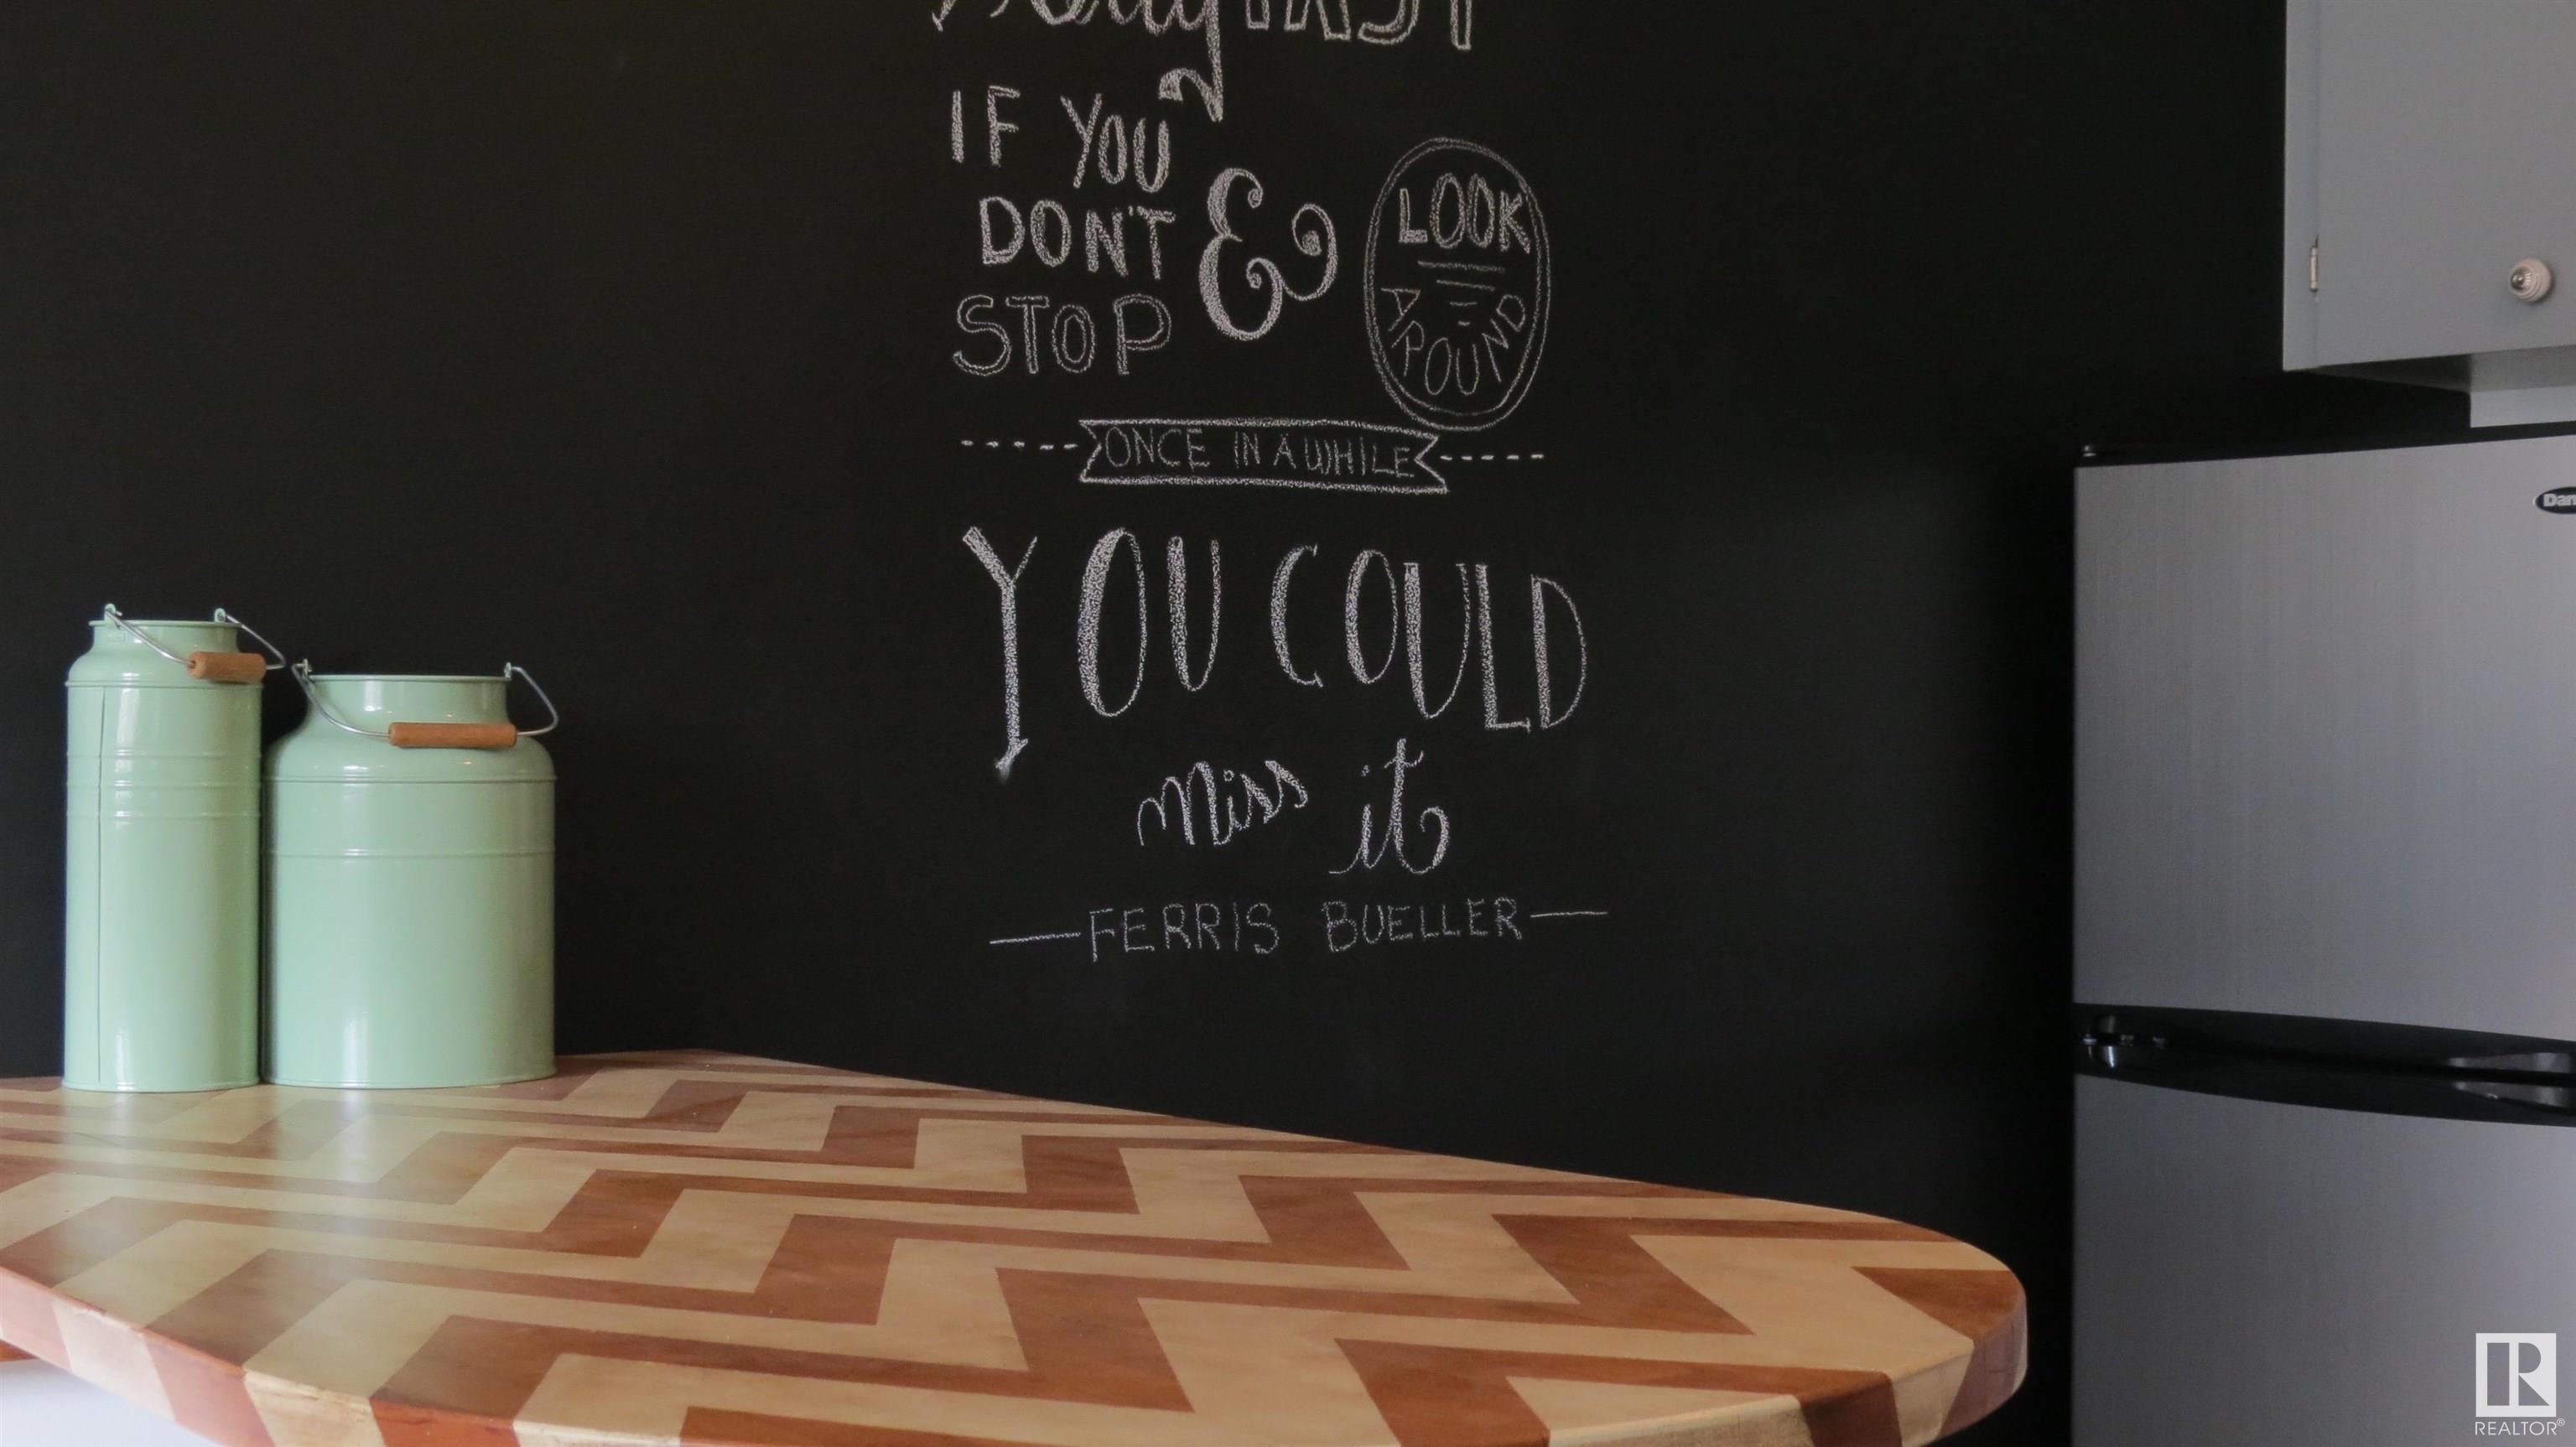 FAST
IF YOU
DON'T
STOP
&
LOOK
AROUND
ONCE IN A WHILE
YOU COULD
miss it
FERRIS BUELLER
REALTOR®